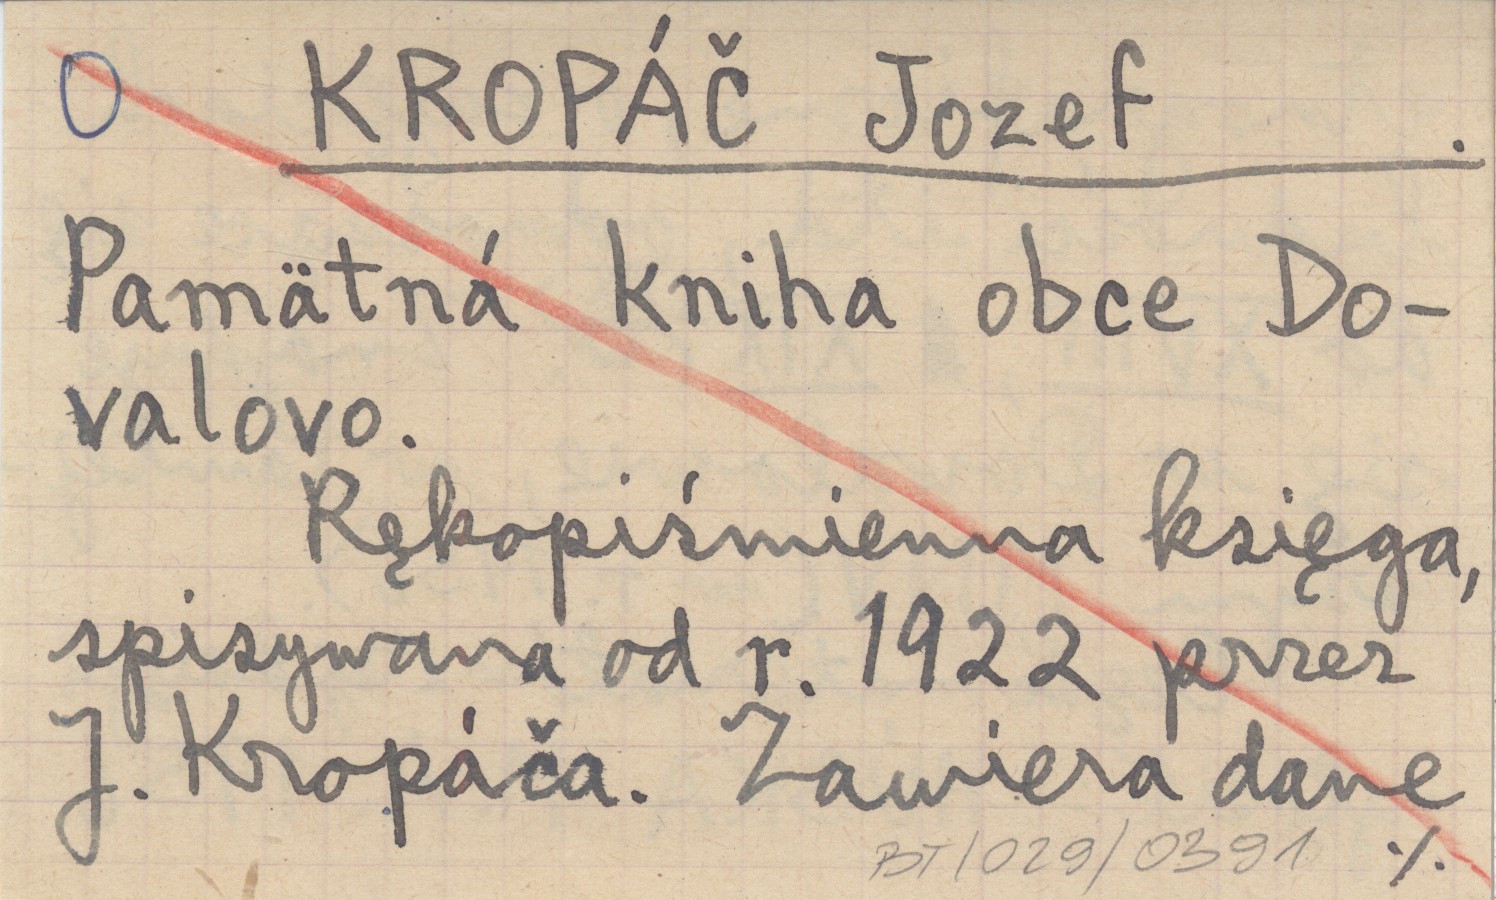 O KROPÁČ Jozef .
Pamätná kniha obce Do-
valovo.
Rękopiśmienna księga,
spisywana od r. 1922 przez
J. Kropáča. Zawiera dane
BT/029/0391 ·/.